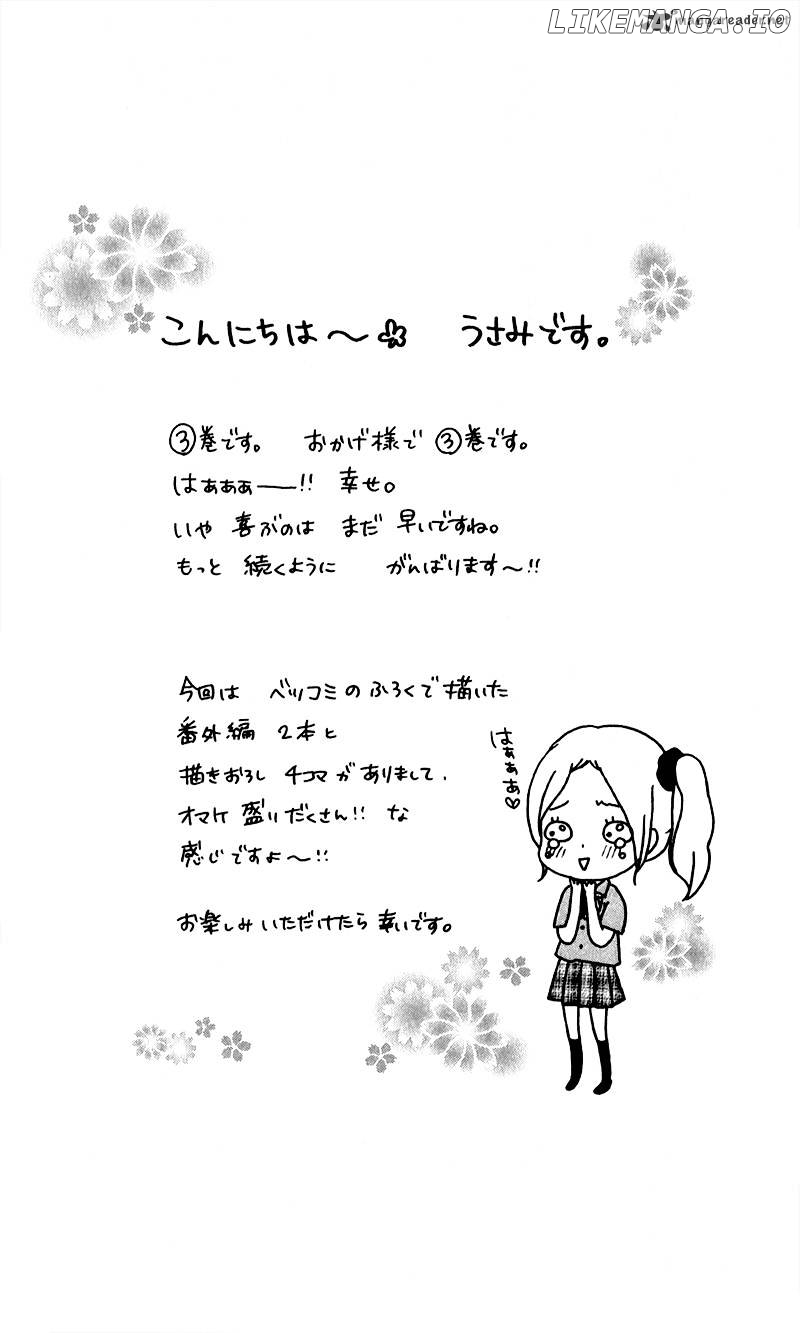 LIKEMANGA.IO
こんにちは〜 うさみです。
③巻です。 おかげ様で ③巻です。
はぁぁぁ――!! 幸せ。
いや 喜ぶのは まだ 早いですね。
もっと 続くように がんばります〜!!
今回は ベツコミの ふろくで 描いた
番外編 2本と
描きおろし 4コマが ありまして、
オマケ 盛りだくさん!! な
感じですよ〜!!
お楽しみ いただけたら 幸いです。
はぁぁぁ♡